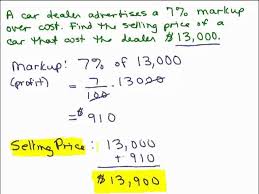 A car dealer advertises a 7% markup
over cost. Find the selling price of a
car that cost the dealer $13,000.
Markup: 7% of 13,000
(profit) = 7/100 · 13000
= $910
Selling Price: 13,000
+ 910
$13,900